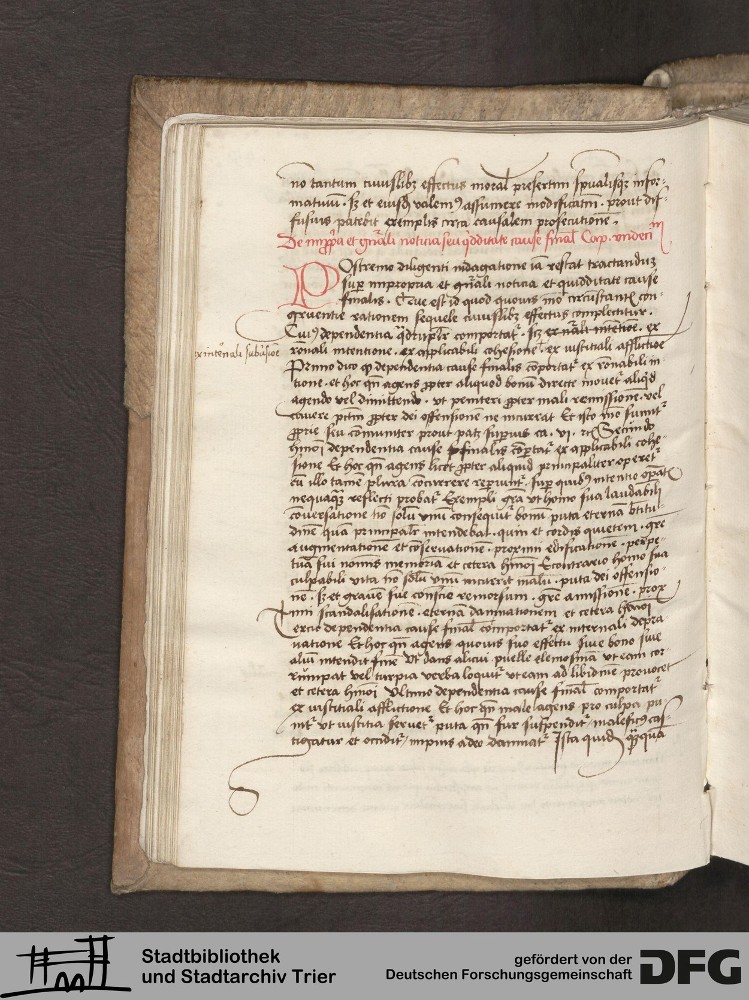 no tantum cuiuslibz effectus moral presertim spualisqz infor-
matiuu. sz et eiusd valem9 assumere modificatm. prout dif-
fusius patebit exemplis circa causalem prosecutione.
De impropria et gnali noticia seu qdditate cause final Cap. undecim
Postremo diligenti indagatione ia restat tractanduz
sup impropria et gnali noticia et quidditate cause
finalis. Que est id quod quouis mo circustantie con-
gruentie rationem sequele cuiuslibz effectus complectitur.
Cui9 dependentia qdruplr comportat. scz ex nali intentioe. ex
ex internali subusioe
ronali intentione. ex applicabili cohesione. ex iusticiali afflictioe
Primo dico q dependentia cause finalis coportat ex ronabili in-
tione. et hoc qn agens ppter aliquod bonu directe mouet aliqd
agendo vel dimittendo. ut peniteri ppter mali remissione. vel
cauere pctm ppter dei offensione ne incurrat Et isto mo sumit
pprie seu comuniter prout patz superius ca. vi. rc Secundo
himoi dependentia cause finalis coportat ex applicabili cohe-
sione Et hoc qn agens licet ppter aliquid principaliter operet
cu illo tame plura concurrere reperiunt. sup quid9 intentio opat
nequaqz reflecti probat Exempli gra vt homo sua laudabili
conuersatione no solu vnu consequit bonu puta eterna btitu-
dine qua principalr intendebat. quin et cordis quietem. gre
augmentatione et coseruatione. proximi edificatione. perpe-
tua sui nominis memoria et cetera himoi Econtrario homo sua
culpabili vita no solu vnu incurrit malu. puta dei offensio-
ne. sz et graue sue conscie remorsum. gre amissione. prox
imi scandalisatione. eterna damnationem et cetera himoi
Tercio dependentia cause final comportat ex internali depra
uatione Et hoc qn agens quouis suo effectu siue bono siue
aliu intendit fine vt dans alicui puelle elemosina vt eam cor-
rumpat vel turpia verba loquit vt eam ad libidine prouocet
et cetera himoi Ultimo dependentia cause final comportat
ex iusticiali afflictione Et hoc qn male agens pro culpa pu
nit vt iusticia seruet puta qn fur suspendit. malefic9 cas-
tigatur et occidit. impius adeo damnat Ista quid qzqua
Stadtbibliothek
und Stadtarchiv Trier
gefördert von der
Deutschen Forschungsgemeinschaft
DFG